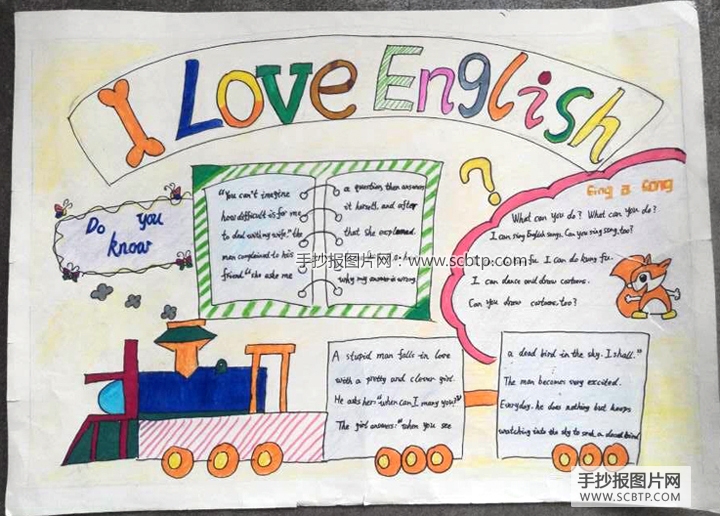 I Love English
Do you
know
"You can't imagine
how difficult is for me
to deal with my wife." the
man complained to his
friend. "she asks me
a question, then answers
it herself, and after
that she explained
why my answer is wrong.
?
Sing a Song
What can you do? What can you do?
I can sing English songs. Can you sing song, too?
fu. I can do kung fu.
I can dance and draw cartoons.
Can you draw cartoons, too?
手抄报图片网:www.scbtp.com
A stupid man falls in love
with a pretty and clever girl.
He asks her: "when can I marry you?"
The girl answers: "when you see
a dead bird in the sky. I shall."
The man becomes very excited.
Everyday, he does nothing but keeps
watching into the sky to seek a dead bird
手抄报图片网
WWW.SCBTP.COM